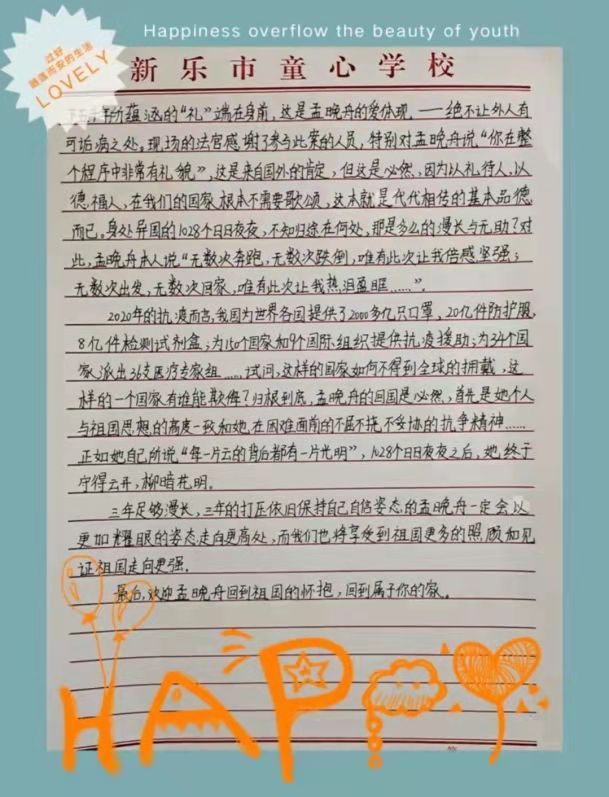 Happiness overflow the beauty of youth
过好
随遇而安的生活
LOVELY
新乐市童心学校
所蕴涵的“礼”端在身前,这是孟晚舟的爱体现——绝不让外人有
可诟病之处。现场的法官感谢了参与此案的人员,特别对孟晚舟说“你在整
个程序中非常有礼貌”,这是来自国外的肯定,但这是必然,因为以礼待人,以
德福人,在我们的国家根本不需要歌颂,这本就是代代相传的基本品德
而已。身处异国的1028个日日夜夜,不知归综在何处,那是多么的漫长与无助?对
此,孟晚舟本人说“无数次奔跑,无数次跌倒,唯有此次让我倍感坚强;
无数次出发,无数次回家,唯有此次让我热泪盈眶……”。
2020年的抗疫而言,我国为世界各国提供了2000多亿只口罩,20亿件防护服,
8亿件检测试剂盒;为150个国家和9个国际组织提供抗疫援助;为34个国
家派出36支医疗专家组……试问,这样的国家如何不得到全球的拥戴,这
样的一个国家有谁能欺侮?归根到底,孟晚舟的回国是必然,首先是她个人
与祖国思想的高度一致和她在困难面前的不屈不挠,不妥协的抗争精神……
正如她自己所说“每一片云的背后都有一片光明”,1028个日日夜夜之后,她终于
守得云开,柳暗花明。
三年足够漫长,三年的打压依旧保持自己自信姿态的孟晚舟一定会以
更加耀眼的姿态走向更高处,而我们也将享受到祖国更多的照顾和见
证祖国走向更强。
最后,欢迎孟晚舟回到祖国的怀抱,回到属于你的家。
HAP